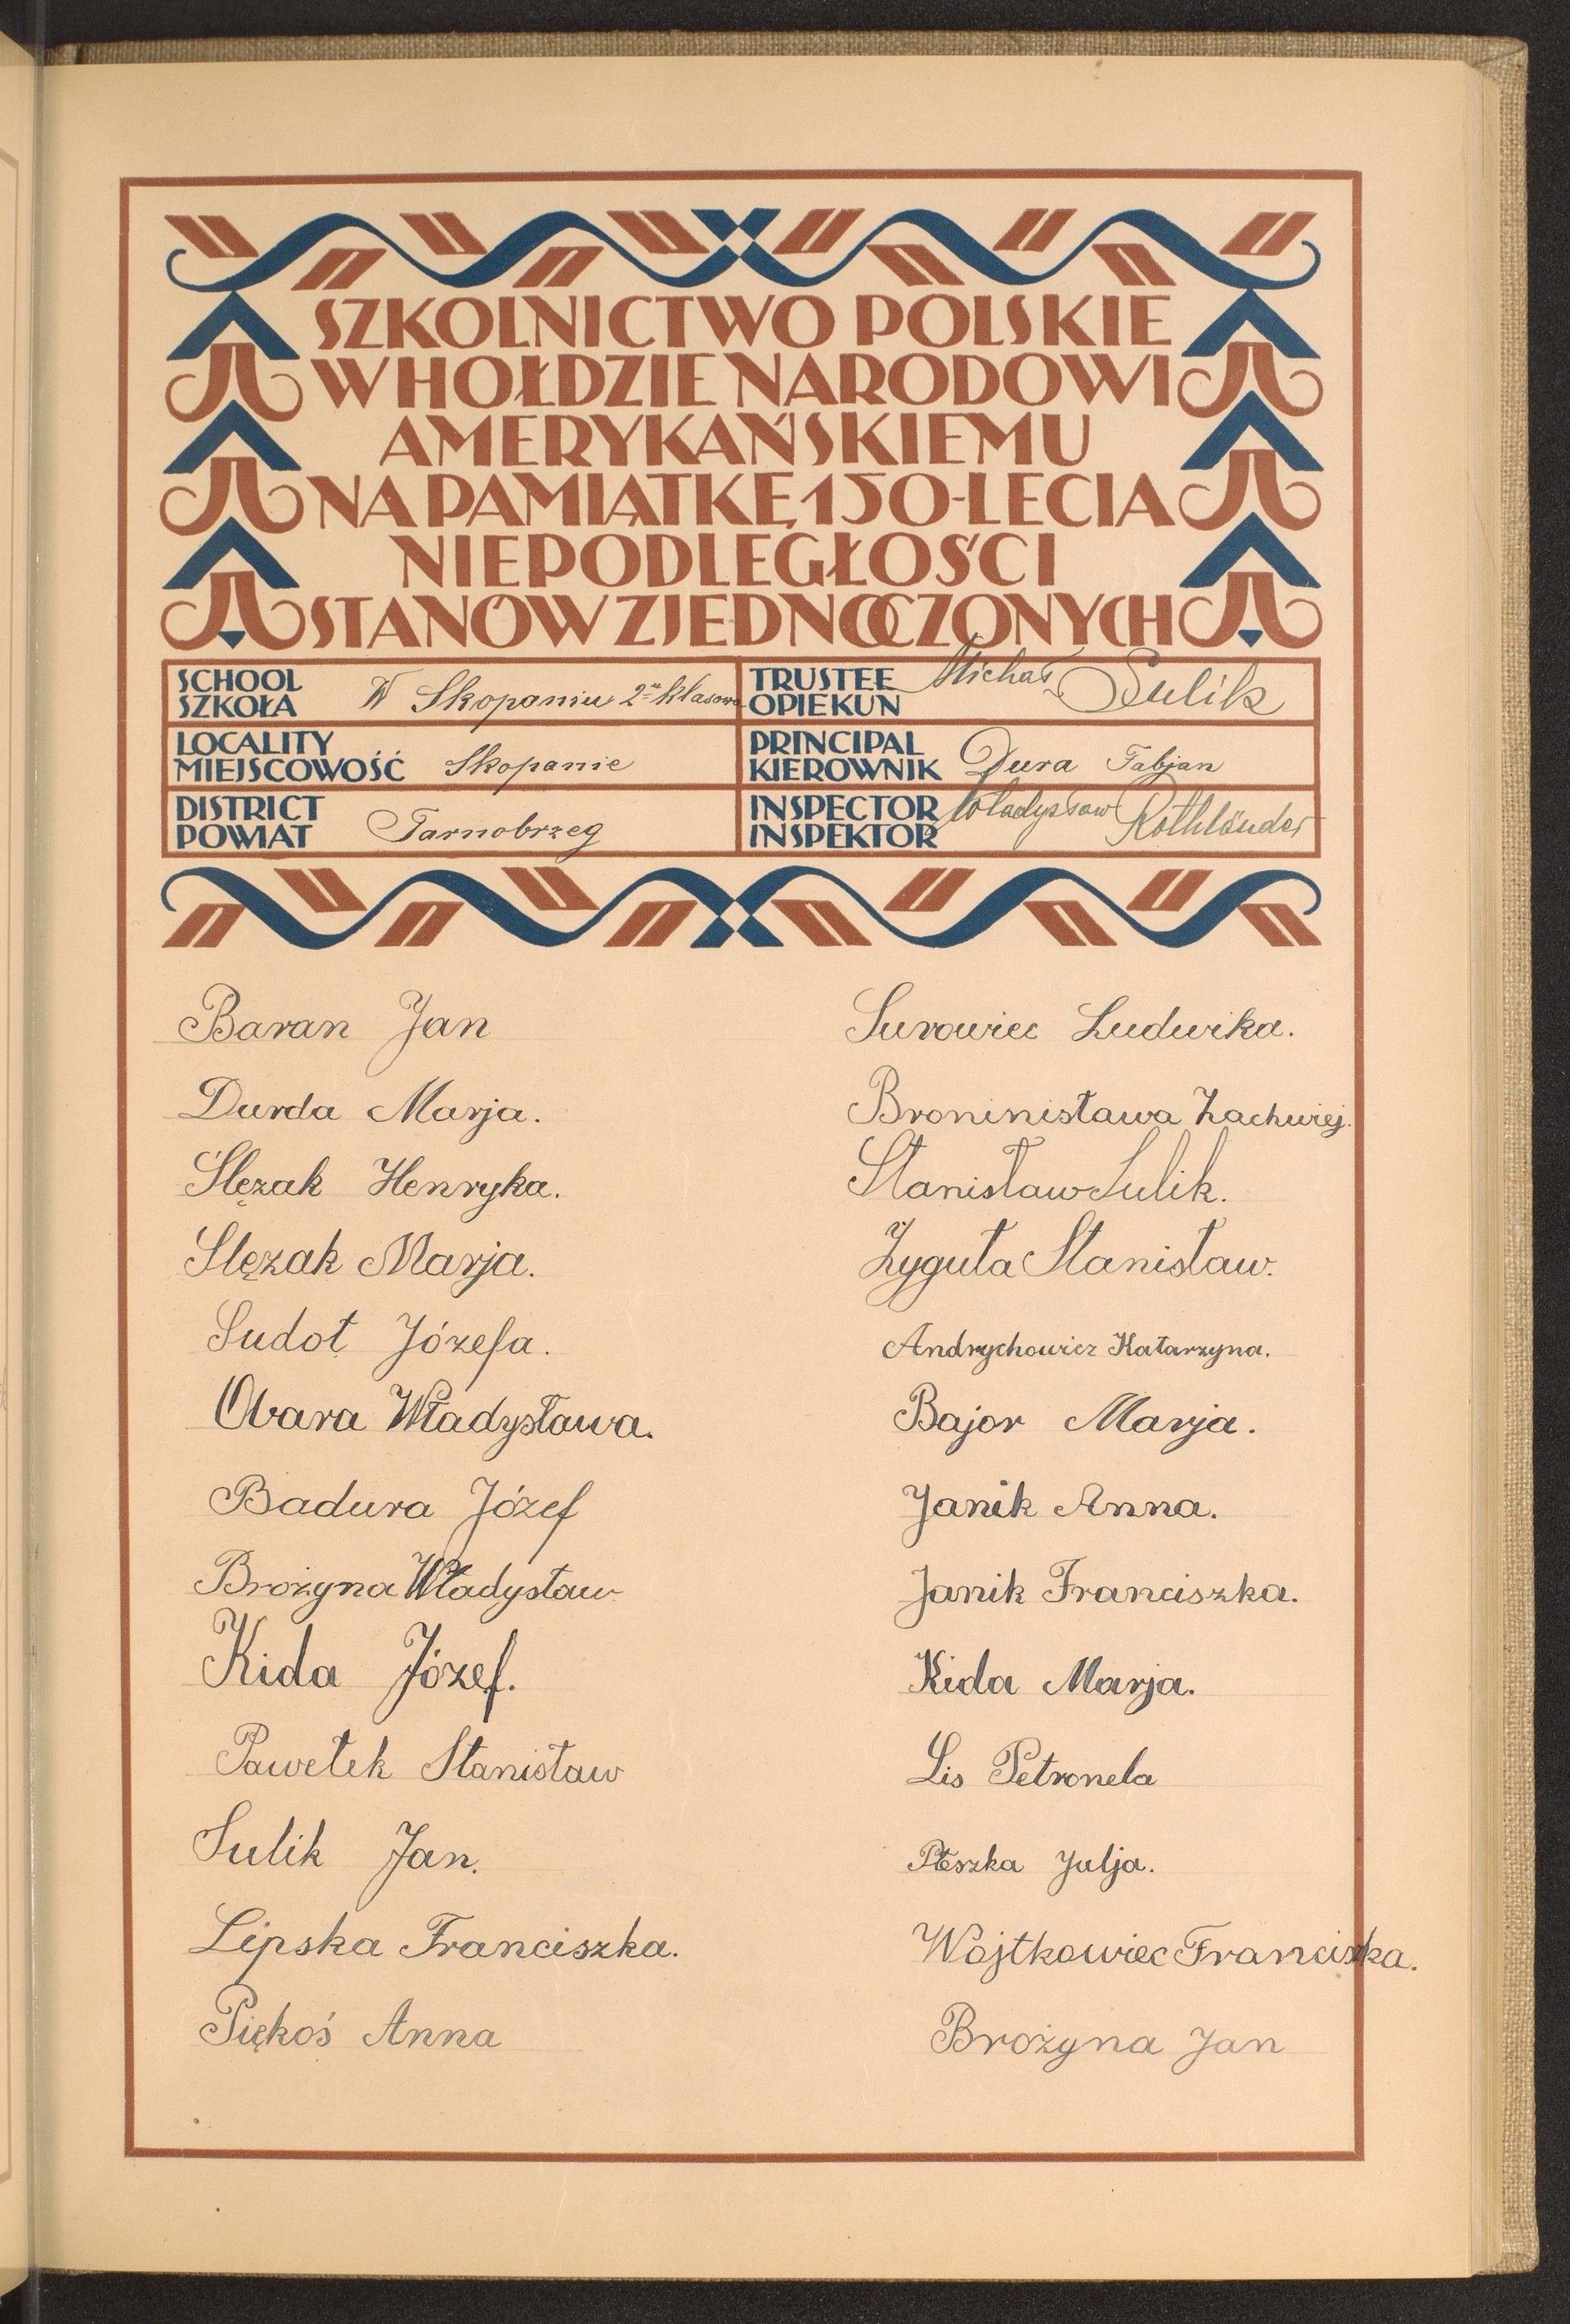 SZKOLNICTWO POLSKIE
W HOŁDZIE NARODOWI
AMERYKAŃSKIEMU
NA PAMIĄTKĘ 150-LECIA
NIEPODLEGŁOŚCI
STANÓW ZJEDNOCZONYCH
SCHOOL
SZKOŁA
W Skopaniu 2-klasowa
TRUSTEE
OPIEKUN
Michał Sulik
LOCALITY
MIEJSCOWOŚĆ
Skopanie
PRINCIPAL
KIEROWNIK
Dura Fabjan
DISTRICT
POWIAT
Tarnobrzeg
INSPECTOR
INSPEKTOR
Władysław Rothländer
Baran Jan
Durda Marja.
Ślęzak Henryka.
Ślęzak Marja.
Sudoł Józefa.
Obara Władysława.
Badura Józef
Brożyna Władysław
Kida Józef.
Pawełek Stanisław
Sulik Jan.
Lipska Franciszka.
Piękoś Anna
Surowiec Ludwika.
Broninisława Zachwiej.
Stanisław Sulik.
Zyguła Stanisław.
Andrychowicz Katarzyna.
Bajor Marja.
Janik Anna.
Janik Franciszka.
Kida Marja.
Lis Petronela
Płeszka Julja.
Wojtkowiec Franciszka.
Brożyna Jan